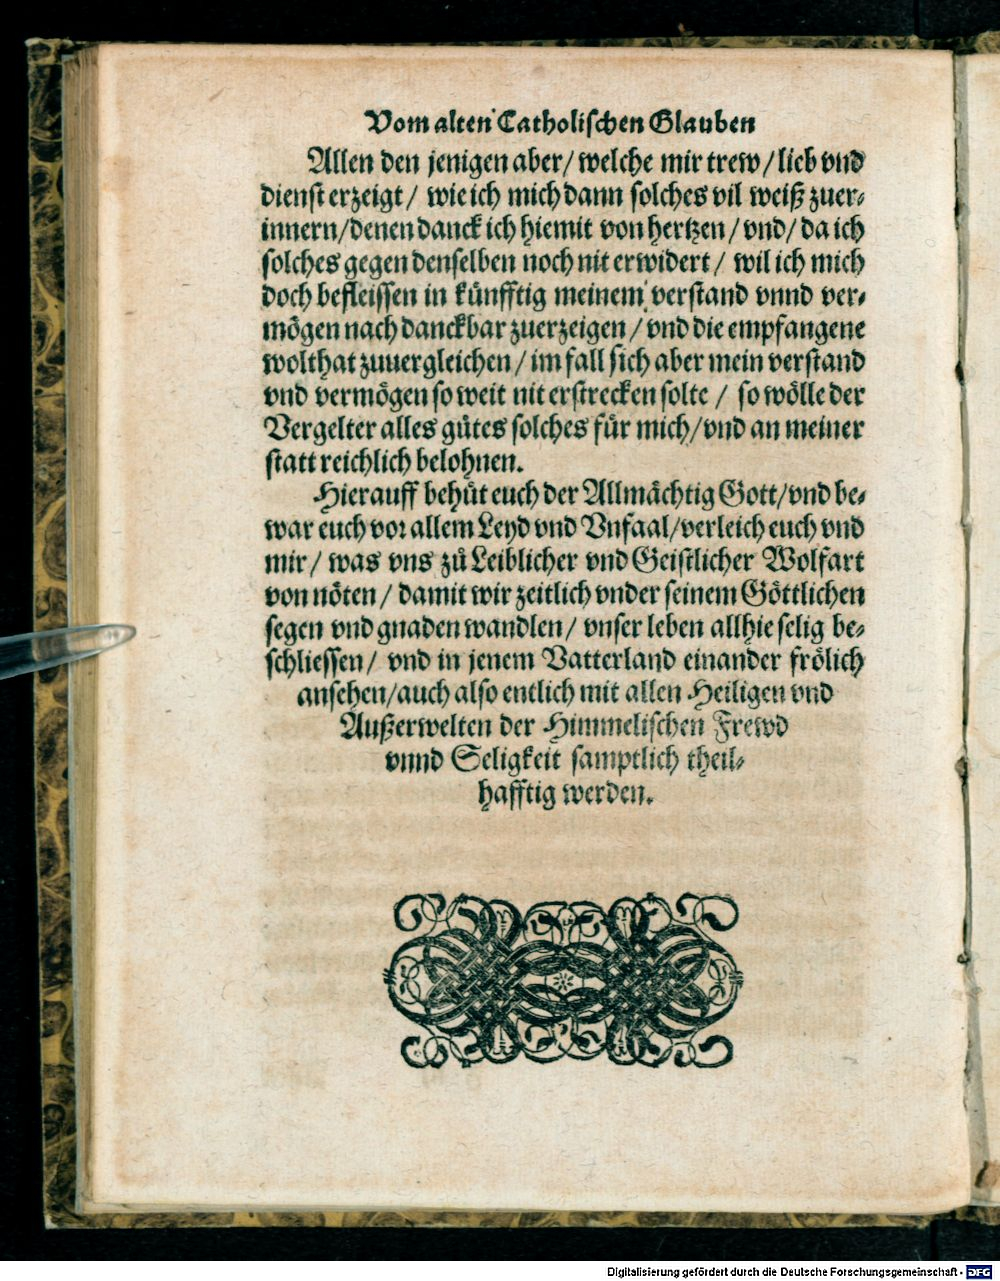 Vom alten Catholischen Glauben
Allen den jenigen aber/ welche mir trew/ lieb vnd
dienst erzeigt/ wie ich mich dann solches vil weiß zuer-
innern/denen danck ich hiemit von hertzen/ vnd/ da ich
solches gegen denselben noch nit erwidert/ wil ich mich
doch befleissen in künfftig meinem verstand vnnd ver-
mögen nach danckbar zuerzeigen/ vnd die empfangene
wolthat zuuergleichen/ im fall sich aber mein verstand
vnd vermögen so weit nit erstrecken solte/ so wölle der
Vergelter alles gůtes solches für mich/vnd an meiner
statt reichlich belohnen.
Hierauff behůt euch der Allmächtig Gott/vnd be-
war euch vor allem Leyd vnd Vnfaal/verleich euch vnd
mir/ was vns zů Leiblicher vnd Geistlicher Wolfart
von nöten/ damit wir zeitlich vnder seinem Göttlichen
segen vnd gnaden wandlen/ vnser leben allhie selig be-
schliessen/ vnd in jenem Vatterland einander frölich
ansehen/auch also entlich mit allen Heiligen vnd
Außerwelten der Himmelischen Frewd
vnnd Seligkeit samptlich theil-
hafftig werden.
Digitalisierung gefördert durch die Deutsche Forschungsgemeinschaft - DFG